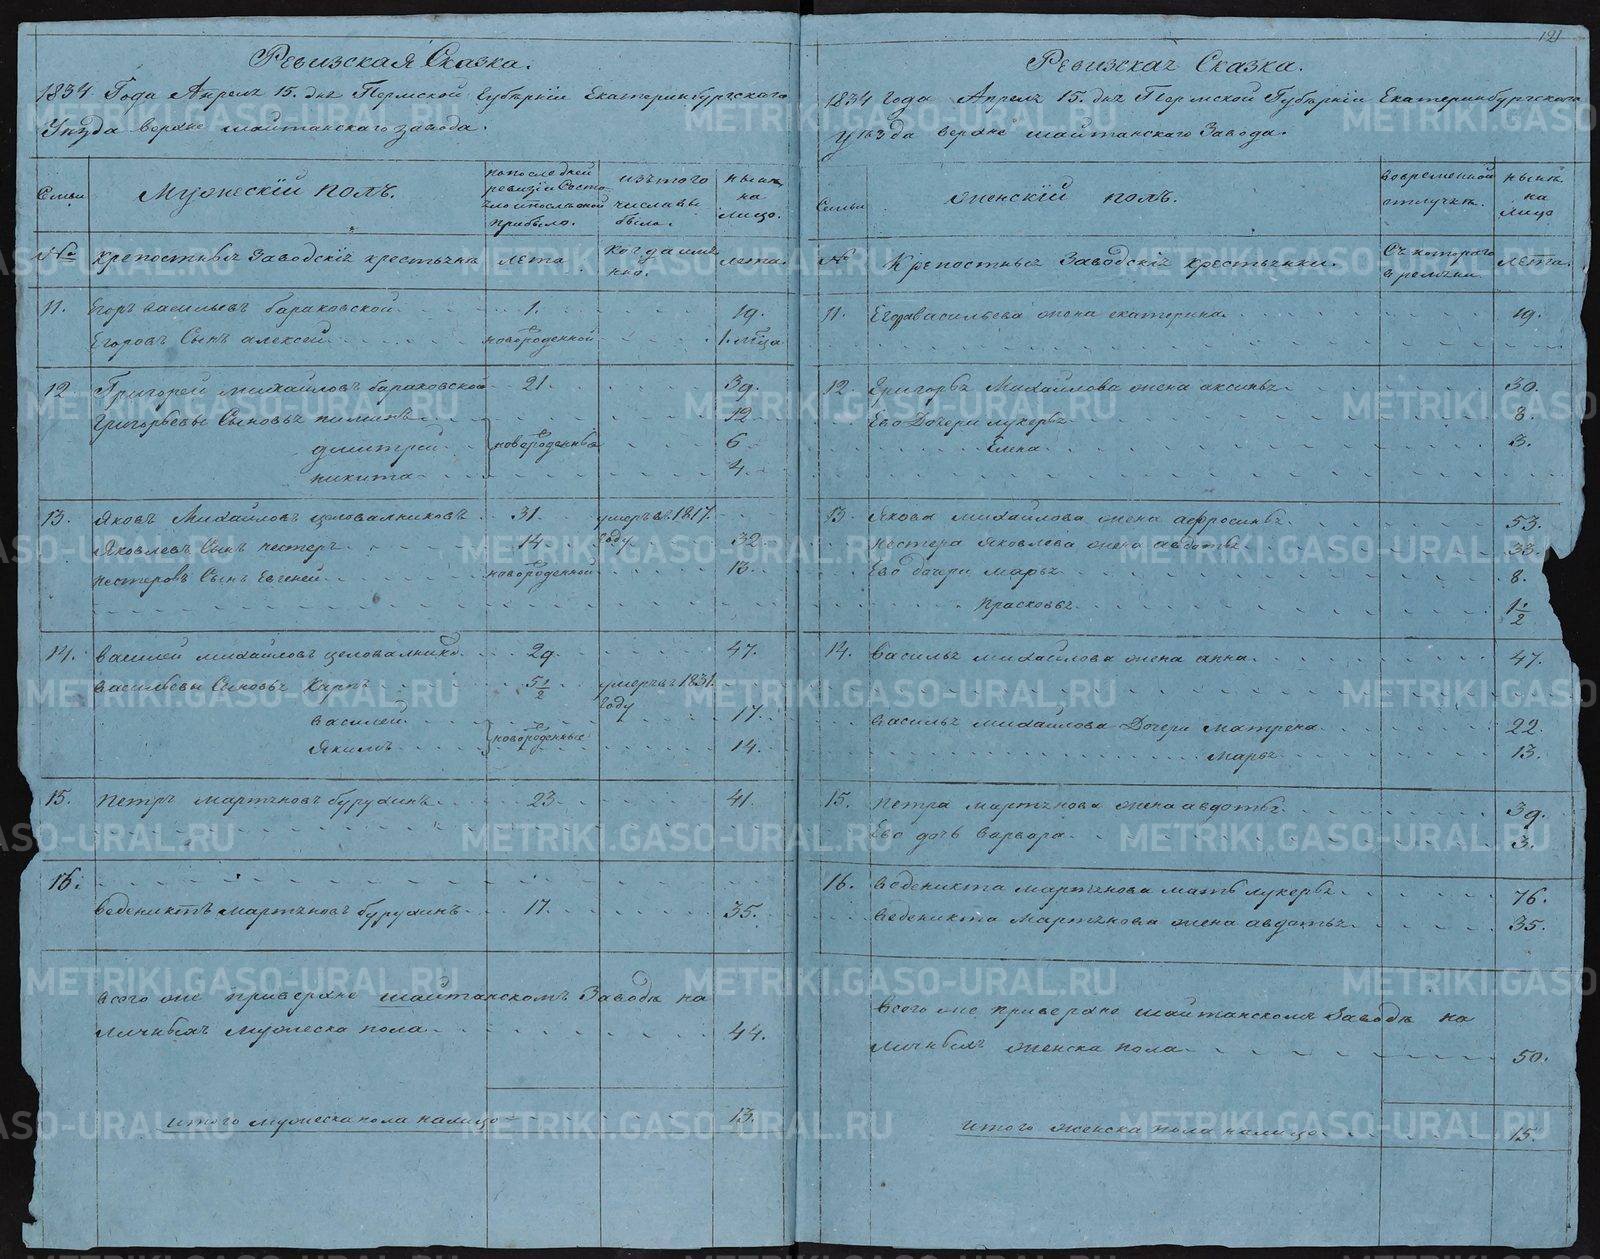 Ревизская Сказка.
1834 Года Апреля 15. дня Пермской Губернии Екатеринбургскаго
Уезда верхне шайтанскаго завода.
Семьи
Мужескій полъ.
попоследней ревизіи Состояло ипослеоной прибыло.
изътого числа выбыло.
ныне на лицо.
№
крепостныя Заводскія крестьяна
лета
когда имянно.
лета.
11. Егоръ васильевъ бараковской 1. 19.
Егоровъ Сынъ алексей новорожденной 1. мца
12. Григорей михайловъ бараковской 21. 39.
Григорьевы Сыновья пименъ 12
дмитрей новорожденные 6
никита 4.
13. Яковъ Михайловъ целовалниковъ 31. умеръ в 1817.
Яковлевъ Сынъ нестеръ 14 Году 32.
нестеровъ Сынъ Евгеней новорожденной 13.
14. василей михайловъ целовалнико 29. 47.
васильевы Сыновья Карпъ 5 1/2 умеръ в 1831.
василей Году 17.
Якимъ новорожденные 14.
15. Петръ мартяновъ бурухинъ 23. 41.
16.
веденихтъ мартяновъ бурухинъ 17. 35.
всего же приверхне шайтанскомъ Заводе на
личныхъ мужеска пола 44.
итого мужеска пола налицо 13.
121
Ревизская Сказка.
1834 года Апреля 15. дня Пермской Губерніи Екатеринбургскаго
уѣзда верхне шайтанскаго Завода.
Семьи
женскій полъ.
вовременной отлучке.
ныне на лицо
№
Крепостныя Заводскія крестьянки.
Съ котораго времени.
лета.
11. Егора васильева жена екатерина 19.
12. Григорья Михайлова жена аксинья 30.
Ево Дочери лукерья 8.
Елена 3.
13 Якова михайлова жена афросинья 53.
нестера Яковлева жена авдотья 33.
Ево дочери марья 8.
Прасковья 1 1/2
14. василья михайлова жена анна 47.
василья михайлова Дочери матрена 22.
марья 13.
15. петра мартянова жена авдотья 39.
Ево дочь варвара 3.
16. веденихта мартянова мать лукерья 76.
веденихта мартянова жена авдотья 35.
всего же приверхне шайтанскомъ Заводе на
личныхъ женска пола 50.
итого женска пола налицо 15.
METRIKI.GASO-URAL.RU